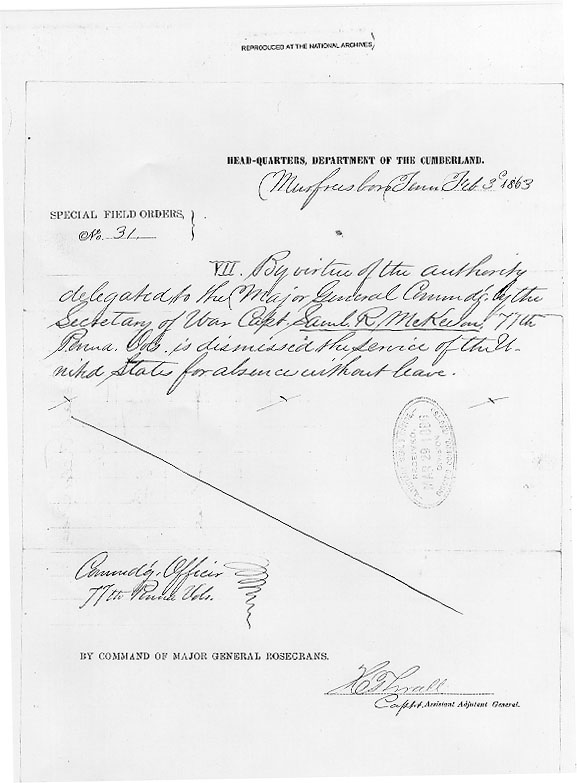 REPRODUCED AT THE NATIONAL ARCHIVES
HEAD-QUARTERS, DEPARTMENT OF THE CUMBERLAND.
Murfreesboro Tenn Feb 3d 1863
SPECIAL FIELD ORDERS, }
No. 31
VII. By virtue of the authority
delegated to the Major General Commdg. by the
Secretary of War Capt. Saml. R. McKee 77th
Penna. Vols. is dismissed the service of the U-
nited States for absence without leave.
RECEIVED
MAR 29
DIVISION
Commdg. Officer
77th Penna Vols.
BY COMMAND OF MAJOR GENERAL ROSECRANS.
H Thrall
Capt. & Assistant Adjutant General.